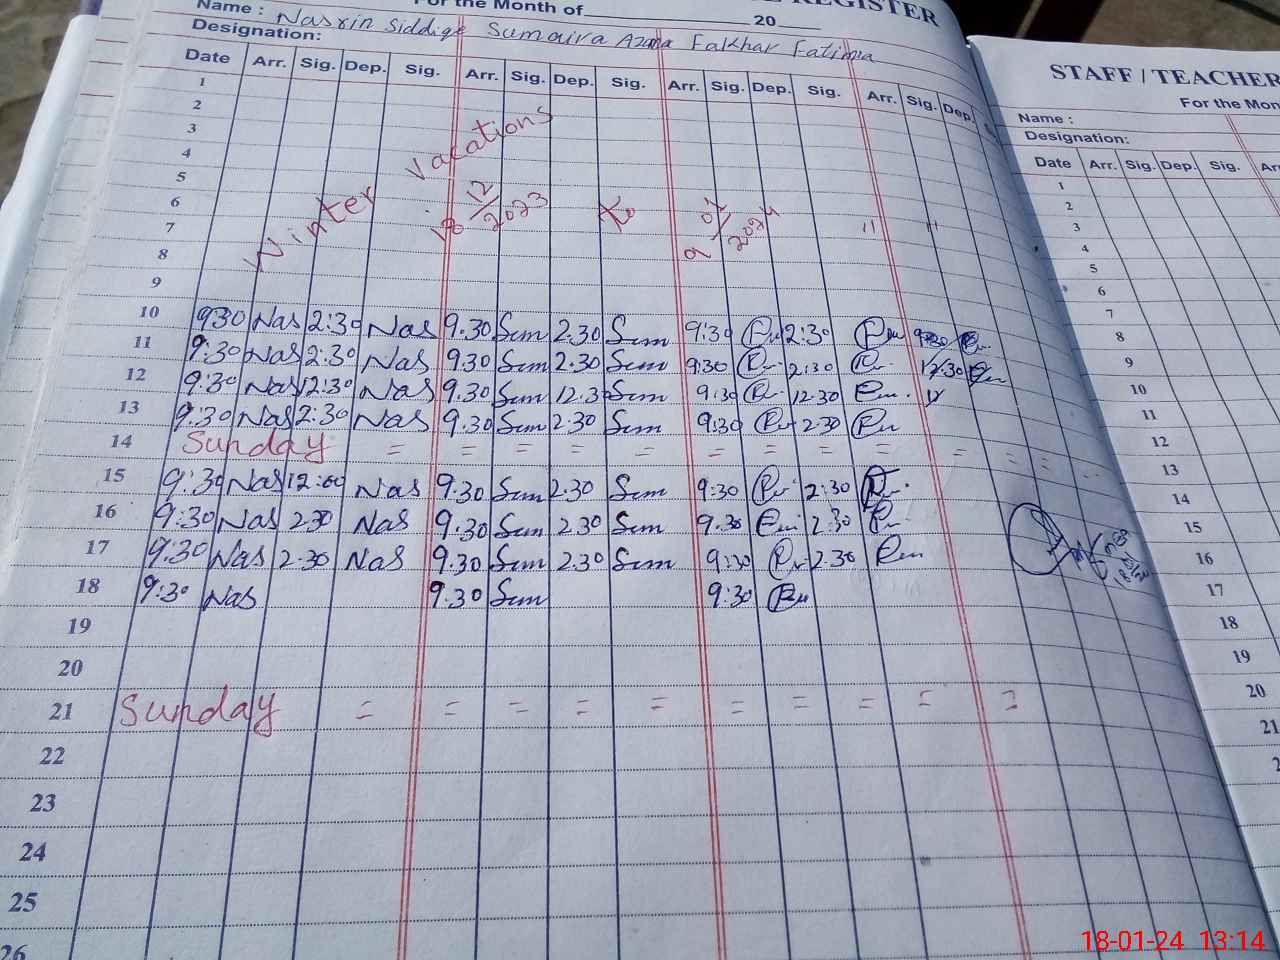 REGISTER
Name : Nasrin Siddige Sumaira Azara Fakhar Fatima
For the Month of 20
Designation:
Date Arr. Sig. Dep. Sig. Arr. Sig. Dep. Sig. Arr. Sig. Dep. Sig. Arr. Sig. Dep.
1
2
3
4
5
6
7
8
9
Winter Vacations
18 12/2023 To 9 01/2024 " "
10 930 Nas 2:30 Nas 9.30 Sum 2.30 Sum 9:30 2:30
11 9:30 Nas 2:30 Nas 9.30 Sum 2.30 Sum 9:30 2:30
12 9:30 Nas 12:30 Nas 9.30 Sum 12.30 Sum 9:30 12.30
13 9:30 Nas 2:30 Nas 9.30 Sum 2.30 Sum 9:30 2.30
14 Sunday = = = = = = = = = = =
15 9:30 Nas 12:00 Nas 9.30 Sum 2.30 Sum 9:30 2:30
16 9:30 Nas 2.30 Nas 9.30 Sum 2.30 Sum 9.30 2:30
17 9:30 Nas 2.30 Nas 9.30 Sum 2.30 Sum 9:30 2.30
18 9:30 Nas 9.30 Sum 9:30
19
20
21 Sunday = = = = = = = = = =
22
23
24
25
26
STAFF / TEACHER
For the Mon
Name :
Designation:
Date Arr. Sig. Dep. Sig.
1
2
3
4
5
6
7
8
9
10
11
12
13
14
15
16
17
18
19
20
21
18-01-24 13:14